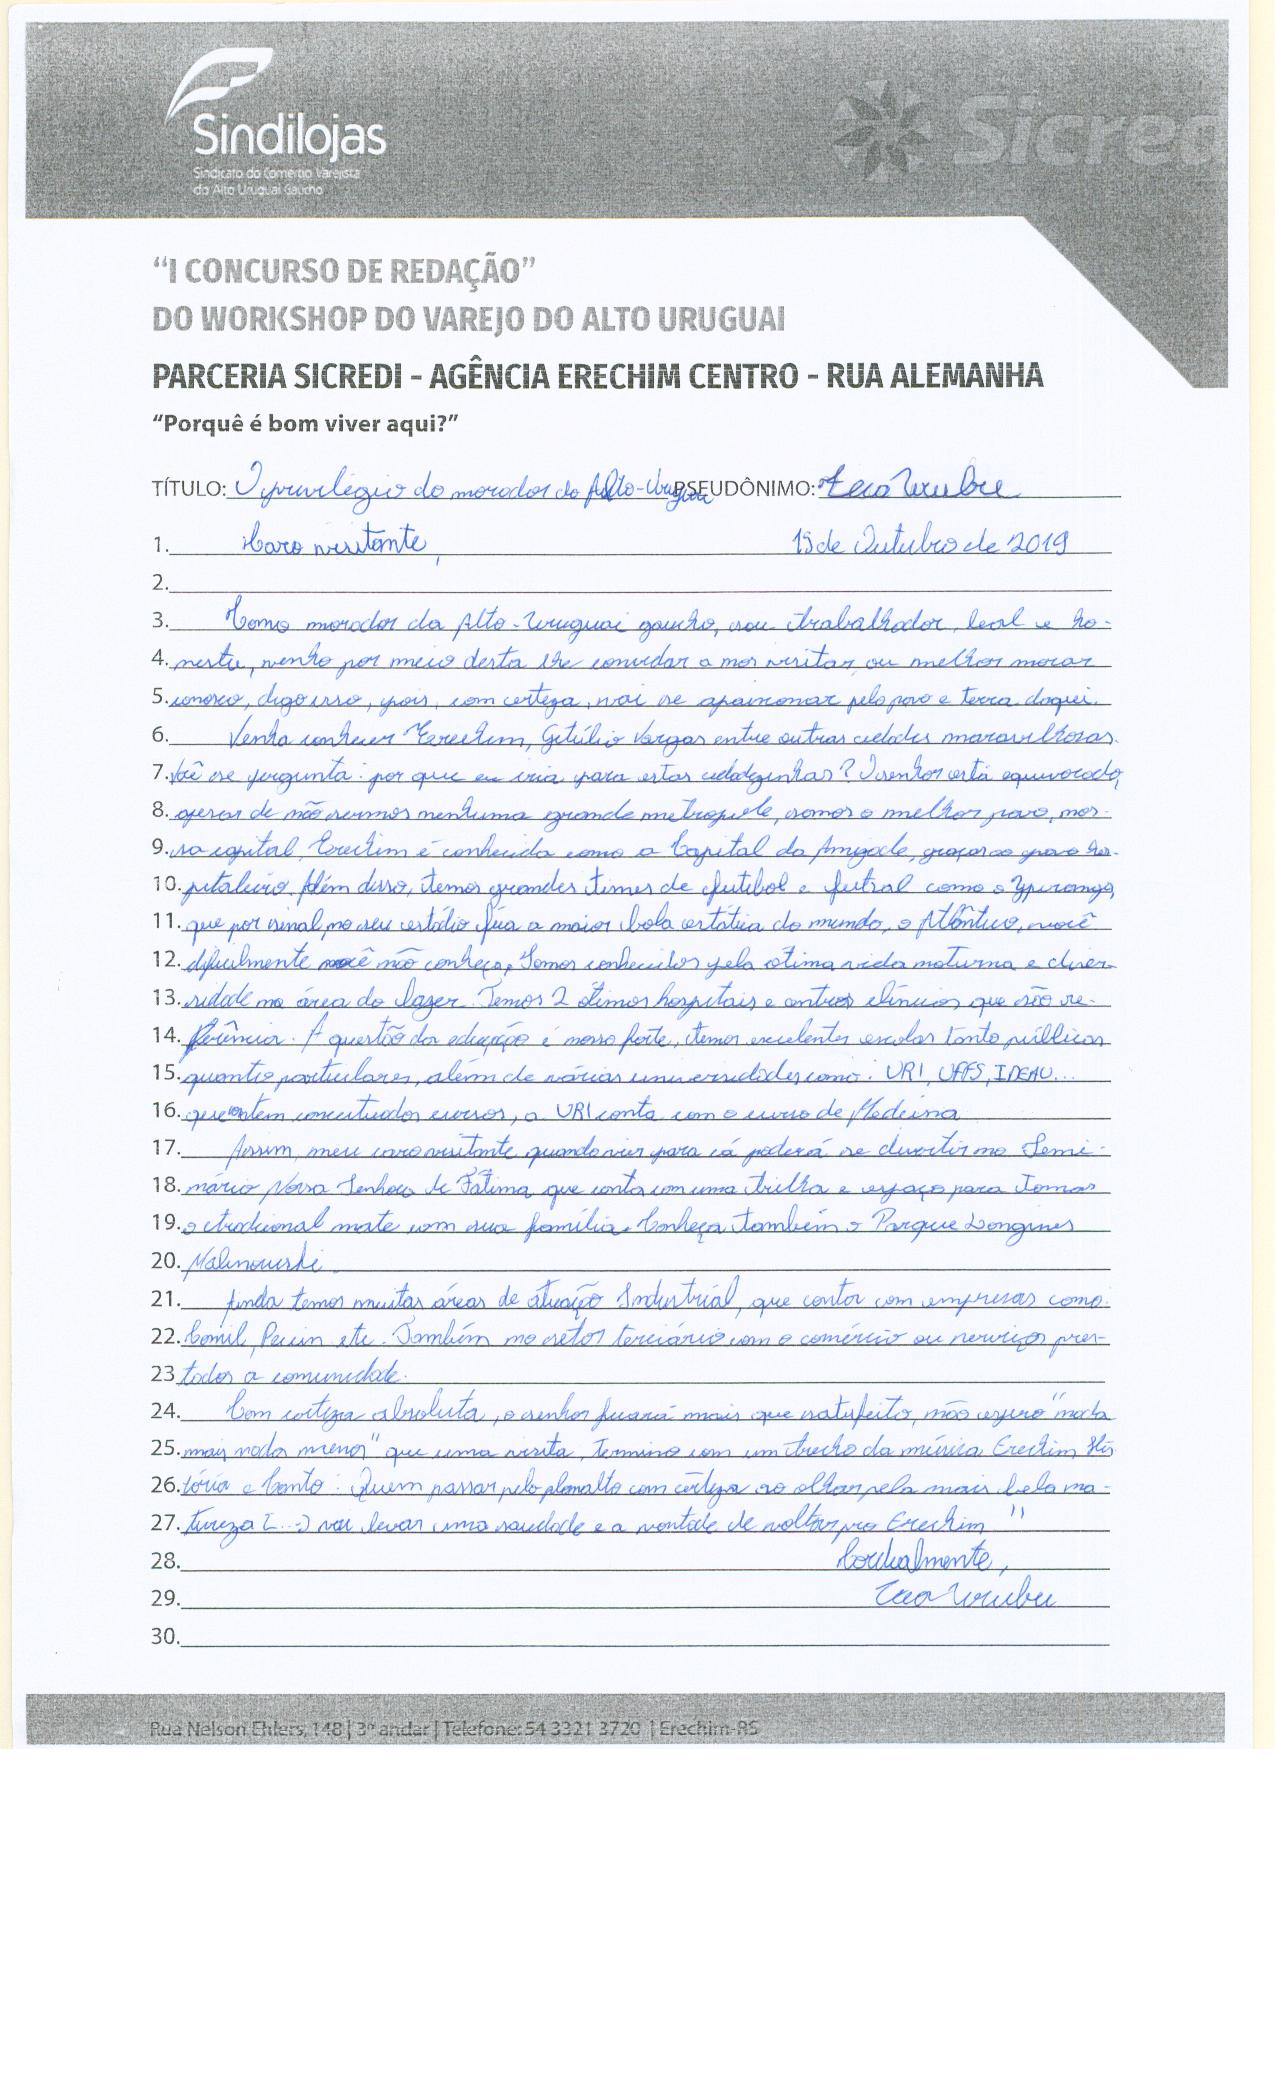 Sindilojas
Sindicato do Comércio Varejista
do Alto Uruguai Gaúcho
Sicred
“I CONCURSO DE REDAÇÃO”
DO WORKSHOP DO VAREJO DO ALTO URUGUAI
PARCERIA SICREDI - AGÊNCIA ERECHIM CENTRO - RUA ALEMANHA
“Porquê é bom viver aqui?”
TÍTULO: O privilégio do morador do Alto-Uruguai PSEUDÔNIMO: Zeca Urubu
1. Caro visitante, 15 de Outubro de 2019
2.
3. Como morador da Alto-Uruguai gaucho, sou trabalhador, leal e ho-
4. nesto, venho por meio desta lhe convidar a nos visitar, ou melhor morar
5. conosco, digo isso, pois, com certeza, vai se apaixonar pelo povo e terra daqui.
6. Venha conhecer Erechim, Getúlio Vargas entre outras cidades maravilhosas.
7. Você se pergunta: por que eu iria para estas cidadezinhas? O senhor está equivocado,
8. apesar de não sermos nenhuma grande metropole, somos o melhor povo, nos-
9. sa capital, Erechim é conhecida como a Capital da Amizade, graças ao povo hos-
10. pitaleiro. Além disso, temos grandes times de futebol e futsal como o Ypiranga,
11. que por sinal, no seu estádio fica a maior bola estática do mundo, o Atlântico, você
12. dificilmente você não conheça. Somos conhecidos pela ótima vida noturna e diver-
13. sidade na área do lazer. Temos 2 ótimos hospitais e centros clínicos que são re-
14. ferência. A questão da educação é nosso forte, temos excelentes escolas tanto públicas
15. quanto particulares, além de várias universidades como: URI, UFFS, IDEAU...
16. que contem conceituados cursos, a URI conta com o curso de Medicina
17. Assim, meu caro visitante quando vier para cá poderá se divertir no Semi-
18. nário Nossa Senhora de Fátima, que conta com uma trilha e espaço para tomar
19. o tradicional mate com sua família. Conheça também o Parque Longines
20. Malinowski.
21. Ainda temos muitas áreas de atuação Industrial, que conta com empresas como:
22. Comil, Peccin etc. Também no setor terciário com o comércio ou serviços pres-
23 tados a comunidade.
24. Com certeza absoluta, o senhor ficará mais que satisfeito, não espero "nada
25. mais nada menos" que uma visita, termino com um trecho da música Erechim, His
26. tória e Canto: Quem passar pelo planalto com certeza ao olhar pela mais bela na-
27. tureza [...] vai levar uma saudade e a vontade de voltar pro Erechim"
28. Cordialmente,
29. Zeca Urubu
30.
Rua Nelson Ehlers, 148 | 3º andar | Telefone: 54 3321 3720 | Erechim-RS